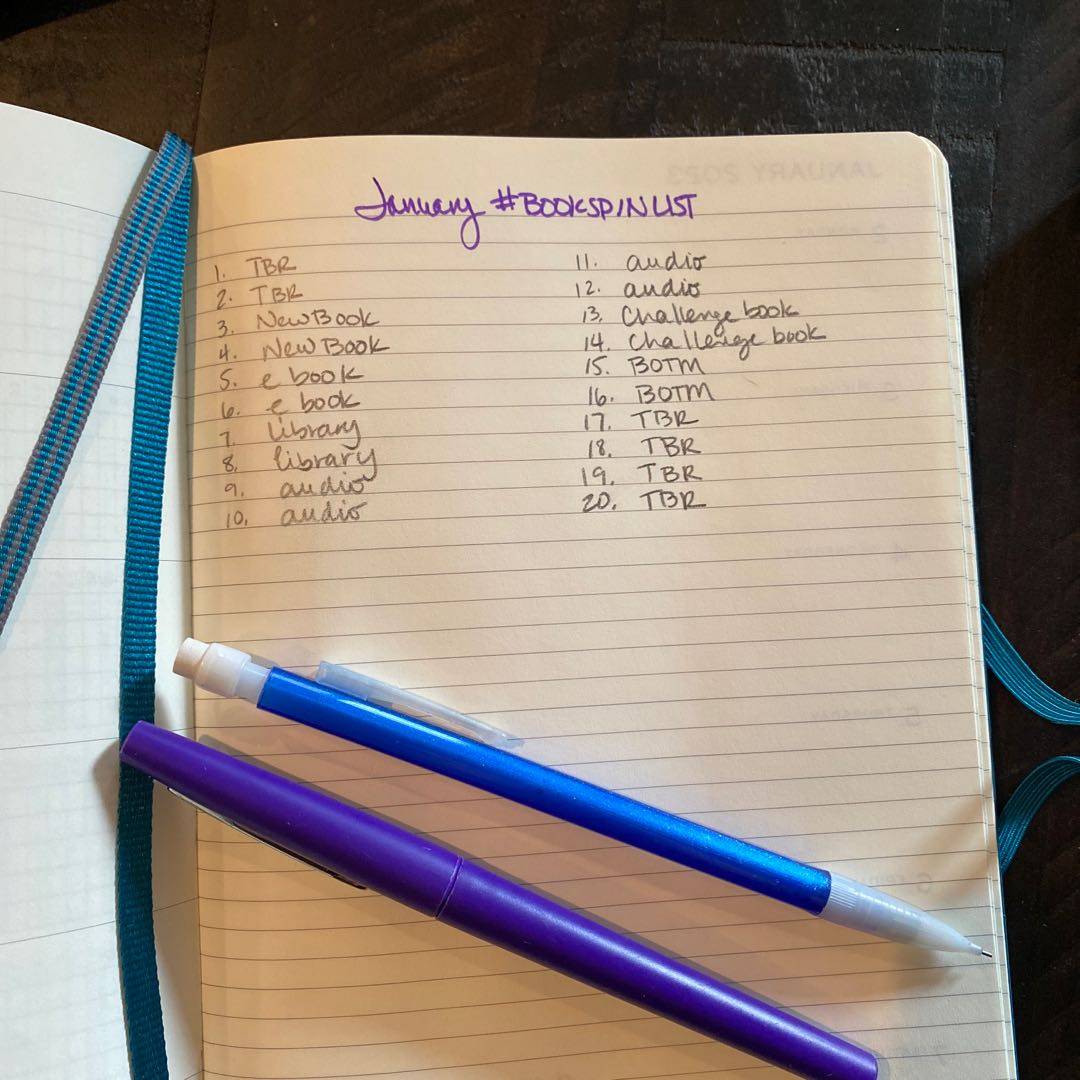 January #BOOKSPINLIST
1. TBR
2. TBR
3. New Book
4. New Book
5. e book
6. e book
7. library
8. library
9. audio
10. audio
11. audio
12. audio
13. Challenge book
14. Challenge book
15. BOTM
16. BOTM
17. TBR
18. TBR
19. TBR
20. TBR
JANUARY 2023